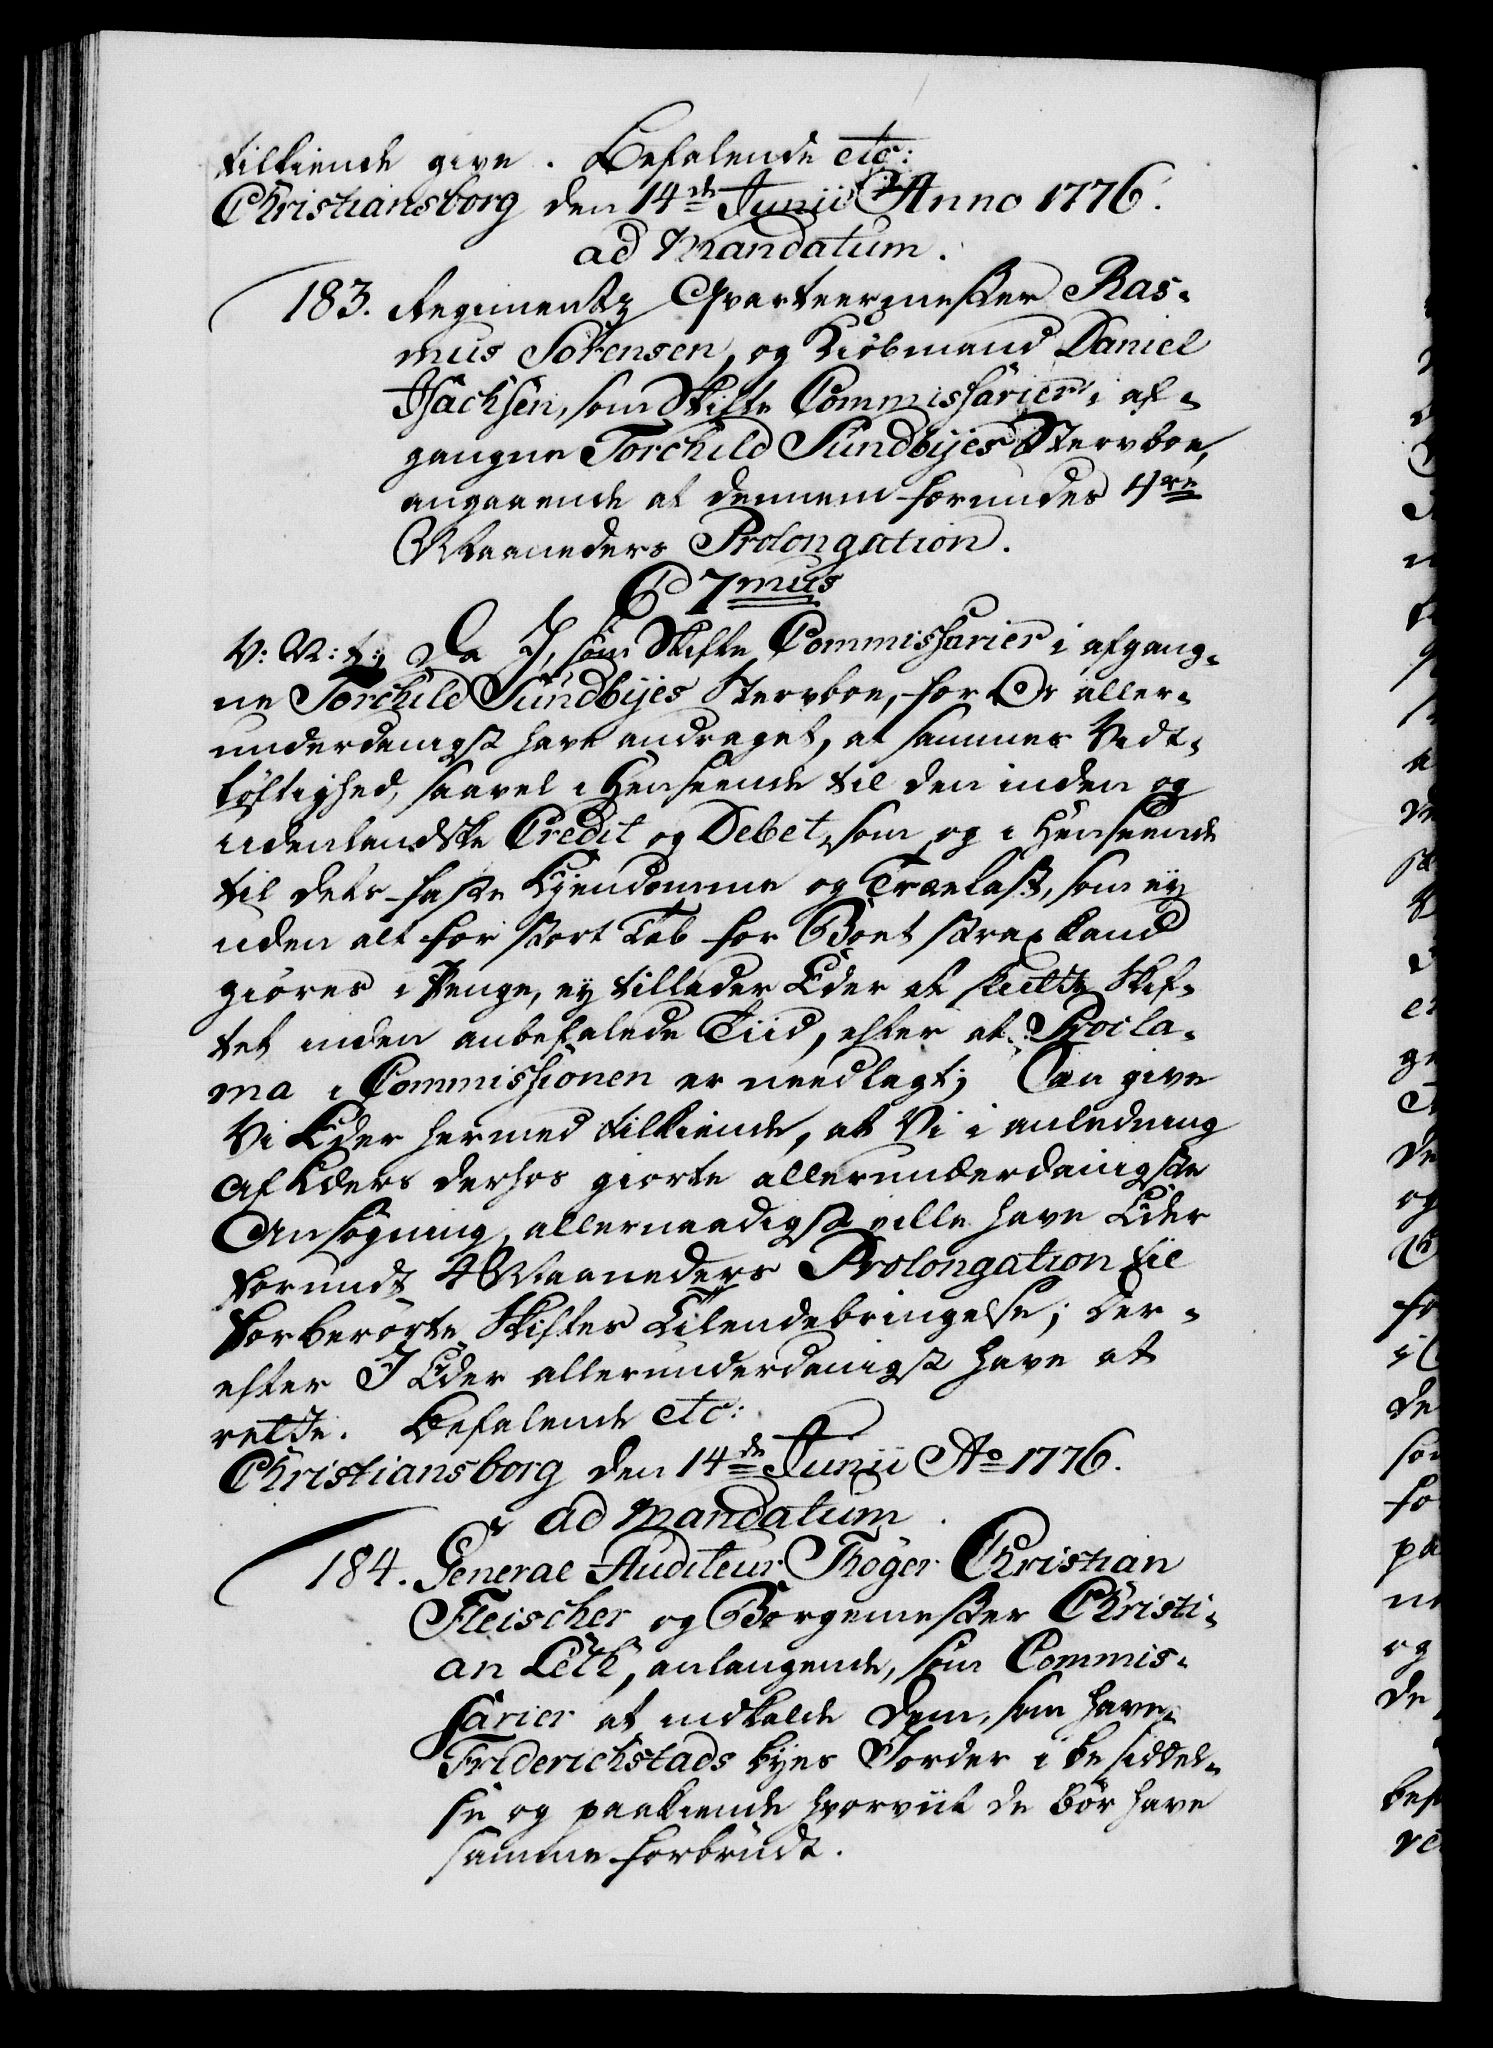 tilkiende give. Befalende etc:
Christiansborg den 14de Junii Anno 1776.
ad Mandatum.
183. Regiments Qvarteermester Ras-
mus Sörensen, og Kiöbmand Daniel
Isachsen, som Skifte Commissarier i af-
gangne Torchild Sundbyes Stervboe,
angaaende at dennem forundes 4re
Maaneders Prolongation.
C 7mus
V: V: t: Da I, som Skifte Commissarier i afgang-
ne Torchild Sundbyes Stervboe, for Os aller-
underdanigst have andraget, at sammes Vidt-
löftighed, saavel i Henseende til den inden og
udenlandske Credit og Debet, som og i Henseende
til dets faste Eyendomme og Trælast, som ey
uden alt for stort Tab for Boet strax kand
giöres i Penge, ey tillader Eder at slutte Skif-
tet inden anbefalede Tiid, efter at Procla-
ma i Commissionen er nedlagt; Saa give
Vi Eder hermed tilkiende, at Vi i anledning
af Eders derhos giorte allerunderdanigste
Ansögning, allernaadigst ville have Eder
forundt 4 Maaneders Prolongation til
forberörte Skiftes Tilendebringelse; Der-
efter I Eder allerunderdanigst have at
rette. Befalende etc:
Christiansborg den 14de Junii Ao 1776.
ad Mandatum.
184. General Auditeur Thöger Christian
Fleischer og Borgemester Christi-
an Leth, anlangende, som Commis-
sarier at indkalde Dem, som have
Friderichstads Byes Jorder i besiddel-
se og paakiende hvorviit de bör have
samme forbrudt.